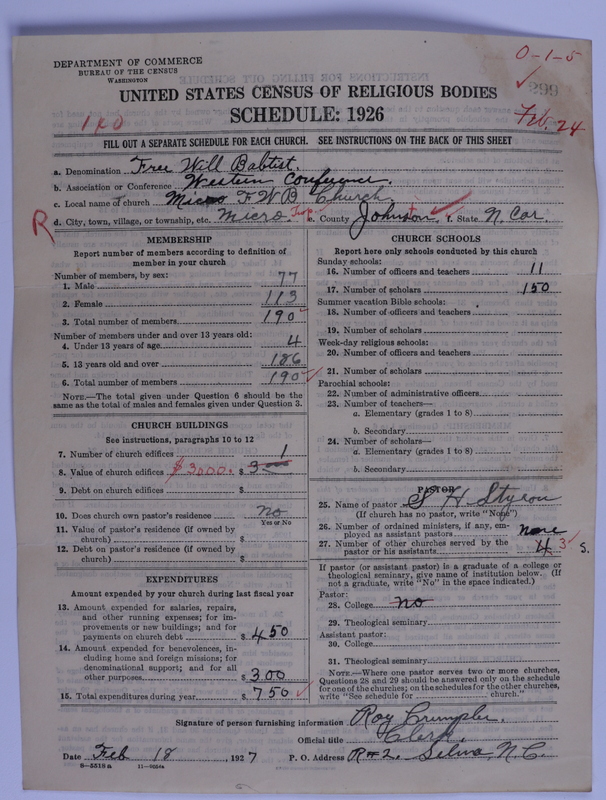 DEPARTMENT OF COMMERCE
BUREAU OF THE CENSUS
WASHINGTON
0-1-5
299
UNITED STATES CENSUS OF RELIGIOUS BODIES
SCHEDULE: 1926
Feb. 24
FILL OUT A SEPARATE SCHEDULE FOR EACH CHURCH. SEE INSTRUCTIONS ON THE BACK OF THIS SHEET
a. Denomination Free Will Babtist.
b. Association or Conference Western Conference.
c. Local name of church Micro F W B Church.
R
d. City, town, village, or township, etc. Micro Twp e. County Johnston, f. State N. Car.
MEMBERSHIP
Report number of members according to definition of member in your church
Number of members, by sex:
1. Male 77
2. Female 113
3. Total number of members 190
Number of members under and over 13 years old:
4. Under 13 years of age 4
5. 13 years old and over 186
6. Total number of members 190
NOTE.—The total given under Question 6 should be the same as the total of males and females given under Question 3.
CHURCH BUILDINGS
See instructions, paragraphs 10 to 12
7. Number of church edifices 1
8. Value of church edifices $3000. $ 3000
9. Debt on church edifices $
10. Does church own pastor's residence no
Yes or No
11. Value of pastor's residence (if owned by church) $
12. Debt on pastor's residence (if owned by church) $
EXPENDITURES
Amount expended by your church during last fiscal year
13. Amount expended for salaries, repairs, and other running expenses; for improvements or new buildings; and for payments on church debt $ 450
14. Amount expended for benevolences, including home and foreign missions; for denominational support; and for all other purposes $ 300
15. Total expenditures during year $ 750
CHURCH SCHOOLS
Report here only schools conducted by this church
Sunday schools:
16. Number of officers and teachers 11
17. Number of scholars 150
Summer vacation Bible schools:
18. Number of officers and teachers
19. Number of scholars
Week-day religious schools:
20. Number of officers and teachers
21. Number of scholars
Parochial schools:
22. Number of administrative officers
23. Number of teachers—
a. Elementary (grades 1 to 8)
b. Secondary
24. Number of scholars—
a. Elementary (grades 1 to 8)
b. Secondary
PASTOR
25. Name of pastor S H Styron
(If church has no pastor, write "None")
26. Number of ordained ministers, if any, employed as assistant pastors none
27. Number of other churches served by the pastor or his assistants 4 3 S.
If pastor (or assistant pastor) is a graduate of a college or theological seminary, give name of institution below. (If not a graduate, write "No" in the space indicated.)
Pastor:
28. College no
29. Theological seminary
Assistant pastor:
30. College
31. Theological seminary
NOTE.—Where one pastor serves two or more churches, Questions 28 and 29 should be answered only on the schedule for one of the churches; on the schedules for the other churches, write "See schedule for church."
Signature of person furnishing information Roy Crumpler.
Official title Clerk.
Date Feb 18, 1927 P. O. Address R#2. Selma, N.C.
8—5518a 11—9024a